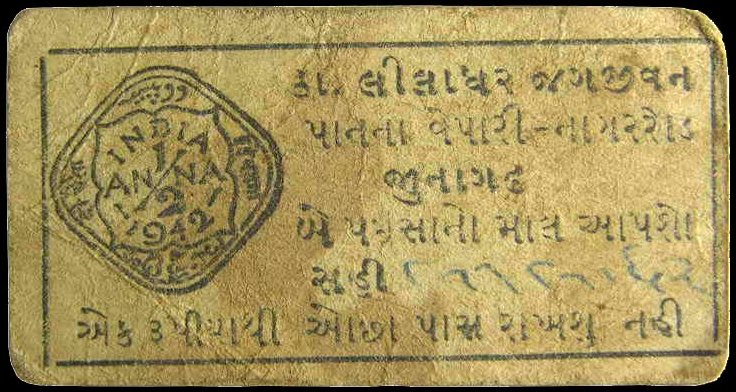 INDIA
1/2
ANNA
1942
કા. લીલાધર જગજીવન
પાનના વેપારી-નાગરરોડ
જુનાગઢ
બે પયસાનો માલ આપશો
સહી
એક રૂપીયાથી ઓછા પાસ રાખશુ નહી